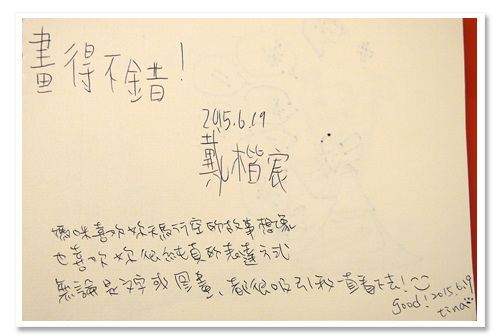 畫得不錯!
2015.6.19
戴楷宸
媽咪喜歡妳天馬行空的故事想像
也喜歡妳很純真的表達方式
無論是文字或圖畫、都很吸引我一直看下去!
good! 2015.6.19
tina